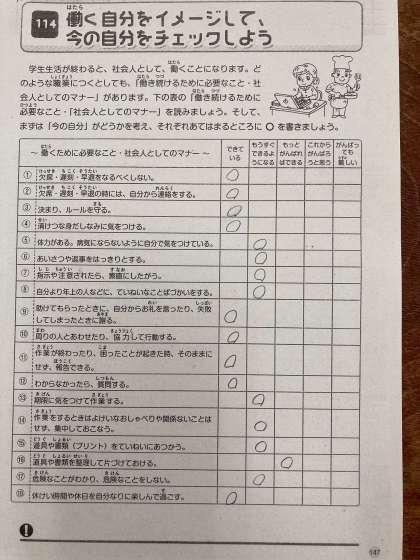 114 働く自分をイメージして、
今の自分をチェックしよう
学生生活が終わると、社会人として、働くことになります。ど
のような職業につくとしても、「働き続けるために必要なこと・社
会人としてのマナー」があります。下の表の「働き続けるために
必要なこと・「社会人としてのマナー」を読みましょう。そして、
まずは「今の自分」がどうかを考え、それぞれあてはまるところに ○ を書きましょう。
～ 働くために必要なこと・社会人としてのマナー ～ できている もうすぐできるようになる もっとがんばればできる これからがんばろうと思う がんばっても難しい
① 欠席・遅刻・早退をなるべくしない。 ○
② 欠席・遅刻・早退の時には、自分から連絡をする。 ○
③ 決まり、ルールを守る。 ○
④ 清けつな身だしなみに気をつける。 ○
⑤ 体力がある。病気にならないように自分で気をつけている。 ○
⑥ あいさつや返事をはっきりとする。 ○
⑦ 指示や注意されたら、素直にしたがう。 ○
⑧ 自分より年上の人などに、ていねいなことばづかいをする。 ○
⑨ 助けてもらったときに、自分からお礼を言ったり、失敗
してしまったときに謝る。 ○
⑩ 周りの人とあわせたり、協力して行動する。 ○
⑪ 作業が終わったり、困ったことが起きた時、そのままに
せず、報告できる。 ○
⑫ わからなかったら、質問する。 ○
⑬ 期限に気をつけて作業する。 ○
⑭ 作業をするときはよけいなおしゃべりや関係ないことは
せず、集中しておこなう。 ○
⑮ 道具や書類（プリント）をていねいにあつかう。 ○
⑯ 道具や書類を整理して片づけておける。 ○
⑰ 危険なことがわかり、危険なことをしない。 ○
⑱ 休けい時間や休日を自分なりに楽しんで過ごす。 ○
147